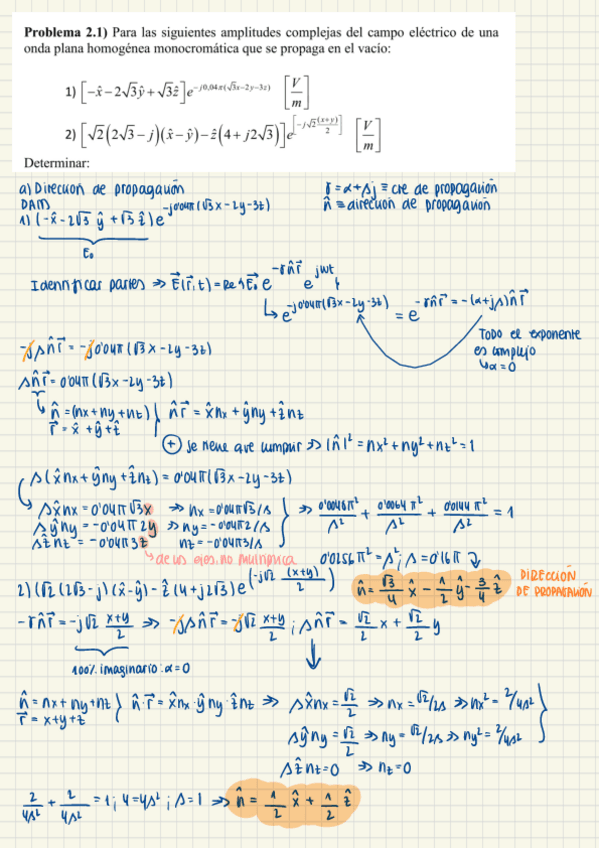 Problema 2.1) Para las siguientes amplitudes complejas del campo eléctrico de una
onda plana homogénea monocromática que se propaga en el vacío:
1) [−x̂−2√3ŷ+√3ẑ]e^{−j0,04π(√3x−2y−3z)} [V/m]
2) [√2(2√3−j)(x̂−ŷ)−ẑ(4+j2√3)]e^{[−j√2(x+y)/2]} [V/m]
Determinar:
a) Dirección de propagación
DAM
γ = α+βj ≡ cte de propagación
n̂ ≡ dirección de propagación
1) (−x̂−2√3 ŷ+√3 ẑ)e^{−j0'04π(√3x−2y−3z)}
E₀
Identificar partes ⇒ E⃗(r⃗,t) = Re{E⃗₀ e^{−γn̂r⃗} e^{jwt}}
↳ e^{−j0'04π(√3x−2y−3z)} = e^{−γn̂r⃗ = −(α+jβ)n̂r⃗}
TODO el exponente
es complejo
↳ α=0
−jβn̂r⃗ = −j0'04π(√3x−2y−3z)
βn̂r⃗ = 0'04π(√3x−2y−3z)
n̂ = (nx+ny+nz)
r⃗ = x̂+ŷ+ẑ } n̂r⃗ = x̂nx+ŷny+ẑnz
+ se tiene que cumplir ⇒ |n̂|² = nx²+ny²+nz² = 1
β(x̂nx+ŷny+ẑnz) = 0'04π(√3x−2y−3z)
βx̂nx = 0'04π√3x ⇒ nx = 0'04π√3/β
βŷny = −0'04π2y ⇒ ny = −0'04π2/β
βẑnz = −0'04π3z nz = −0'04π3/β
⇒ 0'0048π²/β² + 0'0064π²/β² + 0'0144π²/β² = 1
↳ de los ejes, no multiplica
0'0256π² = β²; β = 0'16π
n̂ = √3/4 x̂ − 1/2 ŷ − 3/4 ẑ
DIRECCIÓN
DE PROPAGACIÓN
2) (√2(2√3−j)(x̂−ŷ)−ẑ(4+j2√3)e^{(−j√2 (x+y)/2)}
−γn̂r⃗ = −j√2 x+y/2 ⇒ −jβn̂r⃗ = −j√2 x+y/2; βn̂r⃗ = √2/2 x + √2/2 y
100% imaginario: α=0
n̂ = nx+ny+nz
r⃗ = x+y+z } n̂·r⃗ = x̂nx·ŷny·ẑnz ⇒ βx̂nx = √2/2 ⇒ nx = √2/2β ⇒ nx² = 2/4β²
βŷny = √2/2 ⇒ ny = √2/2β ⇒ ny² = 2/4β²
βẑnz = 0 ⇒ nz = 0
2/4β² + 2/4β² = 1; 4=4β²; β=1 ⇒ n̂ = 1/2 x̂ + 1/2 ẑ